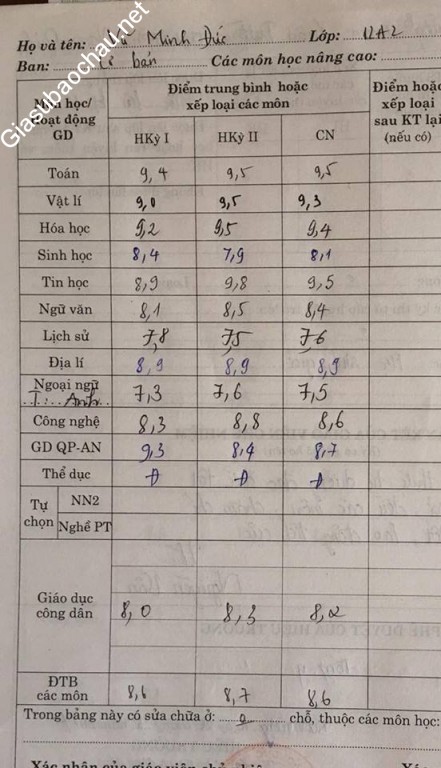 Giasubaochau.net
Họ và tên: Vũ Minh Đức Lớp: 12A2
Ban: Cơ bản Các môn học nâng cao:
Môn học/ Hoạt động GD
Điểm trung bình hoặc xếp loại các môn
Điểm hoặc xếp loại sau KT lại (nếu có)
HKỳ I HKỳ II CN
Toán 9,4 9,5 9,5
Vật lí 9,0 9,5 9,3
Hóa học 9,2 9,5 9,4
Sinh học 8,4 7,9 8,1
Tin học 8,9 9,8 9,5
Ngữ văn 8,1 8,5 8,4
Lịch sử 7,8 7,5 7,6
Địa lí 8,9 8,9 8,9
Ngoại ngữ T. Anh 7,3 7,6 7,5
Công nghệ 8,3 8,8 8,6
GD QP-AN 9,3 8,4 8,7
Thể dục Đ Đ Đ
Tự chọn NN2
Nghề PT
Giáo dục công dân 8,0 8,3 8,2
ĐTB các môn 8,6 8,7 8,6
Trong bảng này có sửa chữa ở: 0 chỗ, thuộc các môn học:
Xác nhận của giáo viên chủ nhiệm Xác